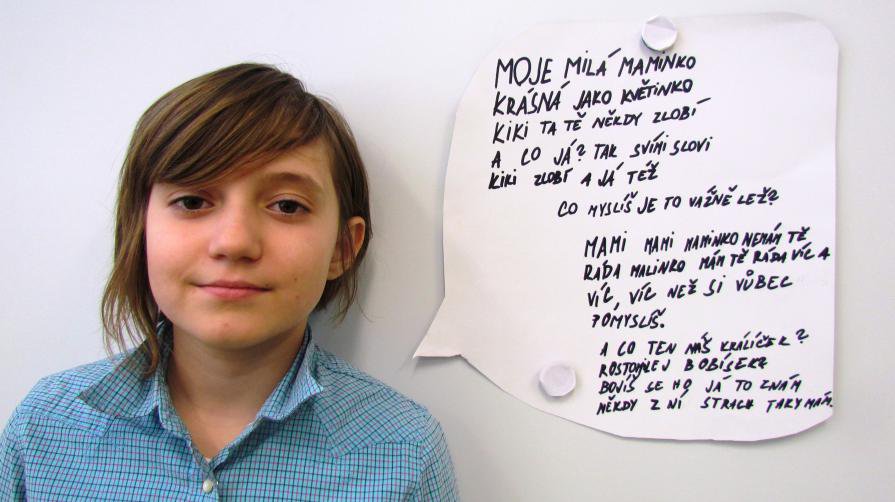 MOJE MILÁ MAMINKO
KRÁSNÁ JAKO KVĚTINKO
KIKI TA TĚ NĚKDY ZLOBÍ
A CO JÁ? TAK SVÍMI SLOVI
KIKI ZLOBÍ A JÁ TÉŽ
CO MYSLÍŠ JE TO VÁŽNĚ LEŽ?
MAMI MAMI MAMINKO NEMÁM TĚ
RÁDA MALINKO MÁM TĚ RÁDA VÍC A
VÍC, VÍC NEŽ SI VŮBEC
POMYSLÍŠ.
A CO TEN NÁŠ KRÁLÍČEK?
ROSTOMILEJ BOBÍSEK?
BOJÍŠ SE HO JÁ TO ZNÁM
NĚKDY Z NÍ STRACH TAKY MÁM.